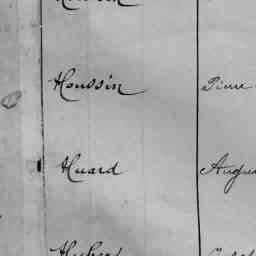 Houssin Pierre
Huard Augus
Hubert